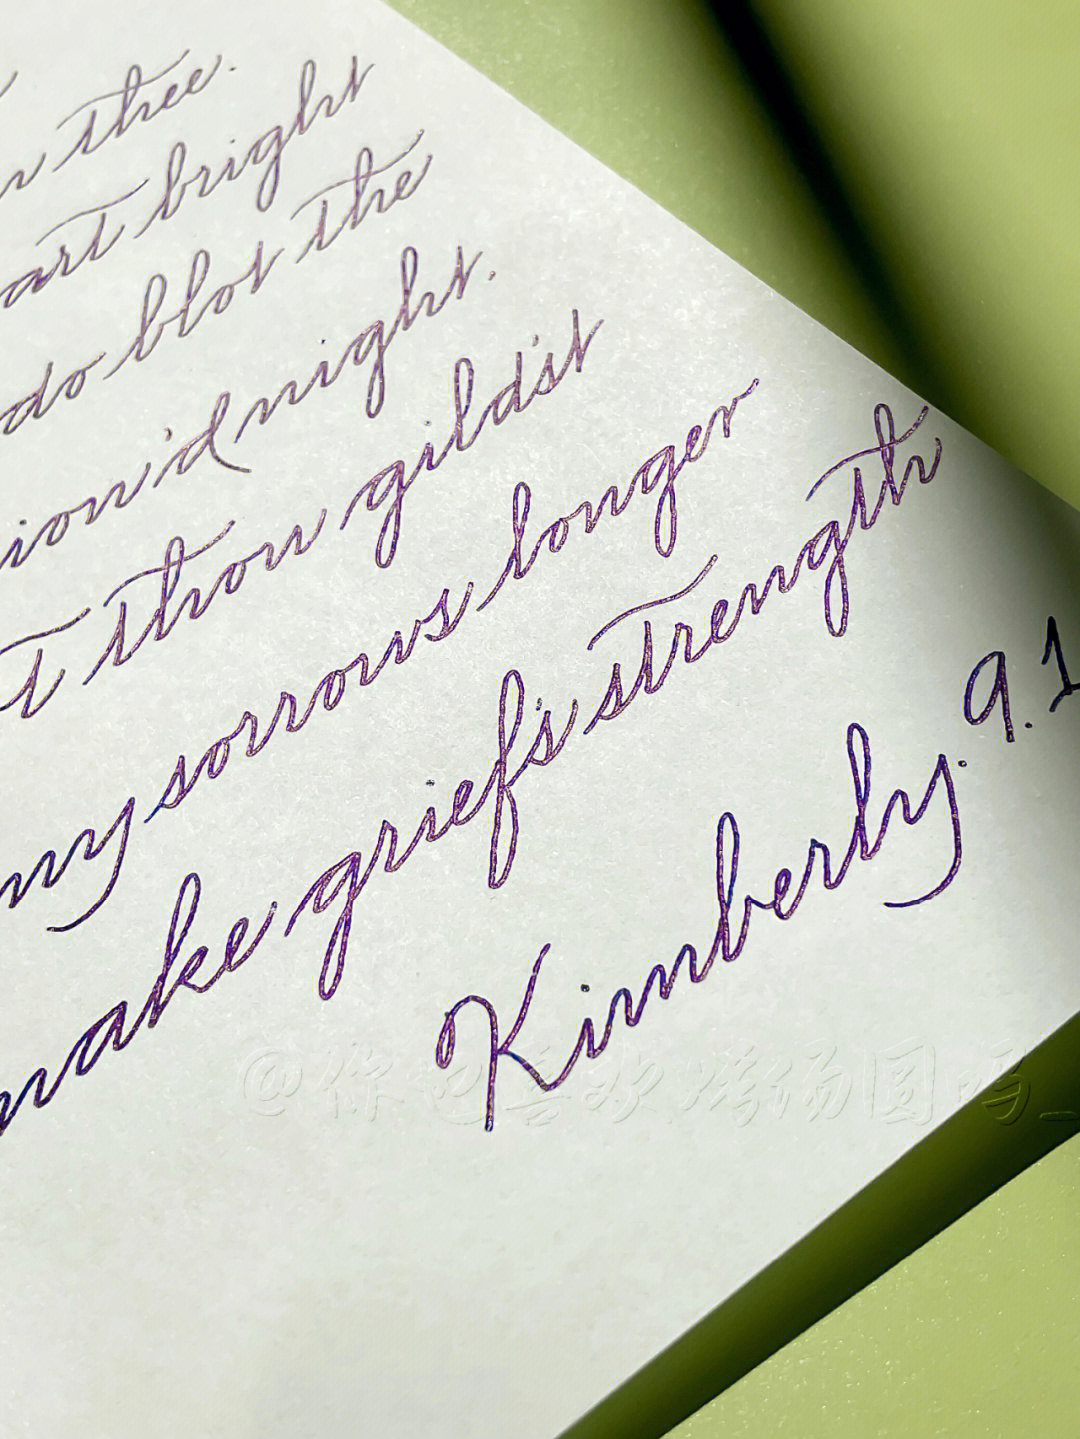 thee.
art bright
do blot the
ion'd night.
t thou gild'st
my sorrows longer
make grief's strength
Kimberly. 9.1
@你也喜欢烤汤圆吗_